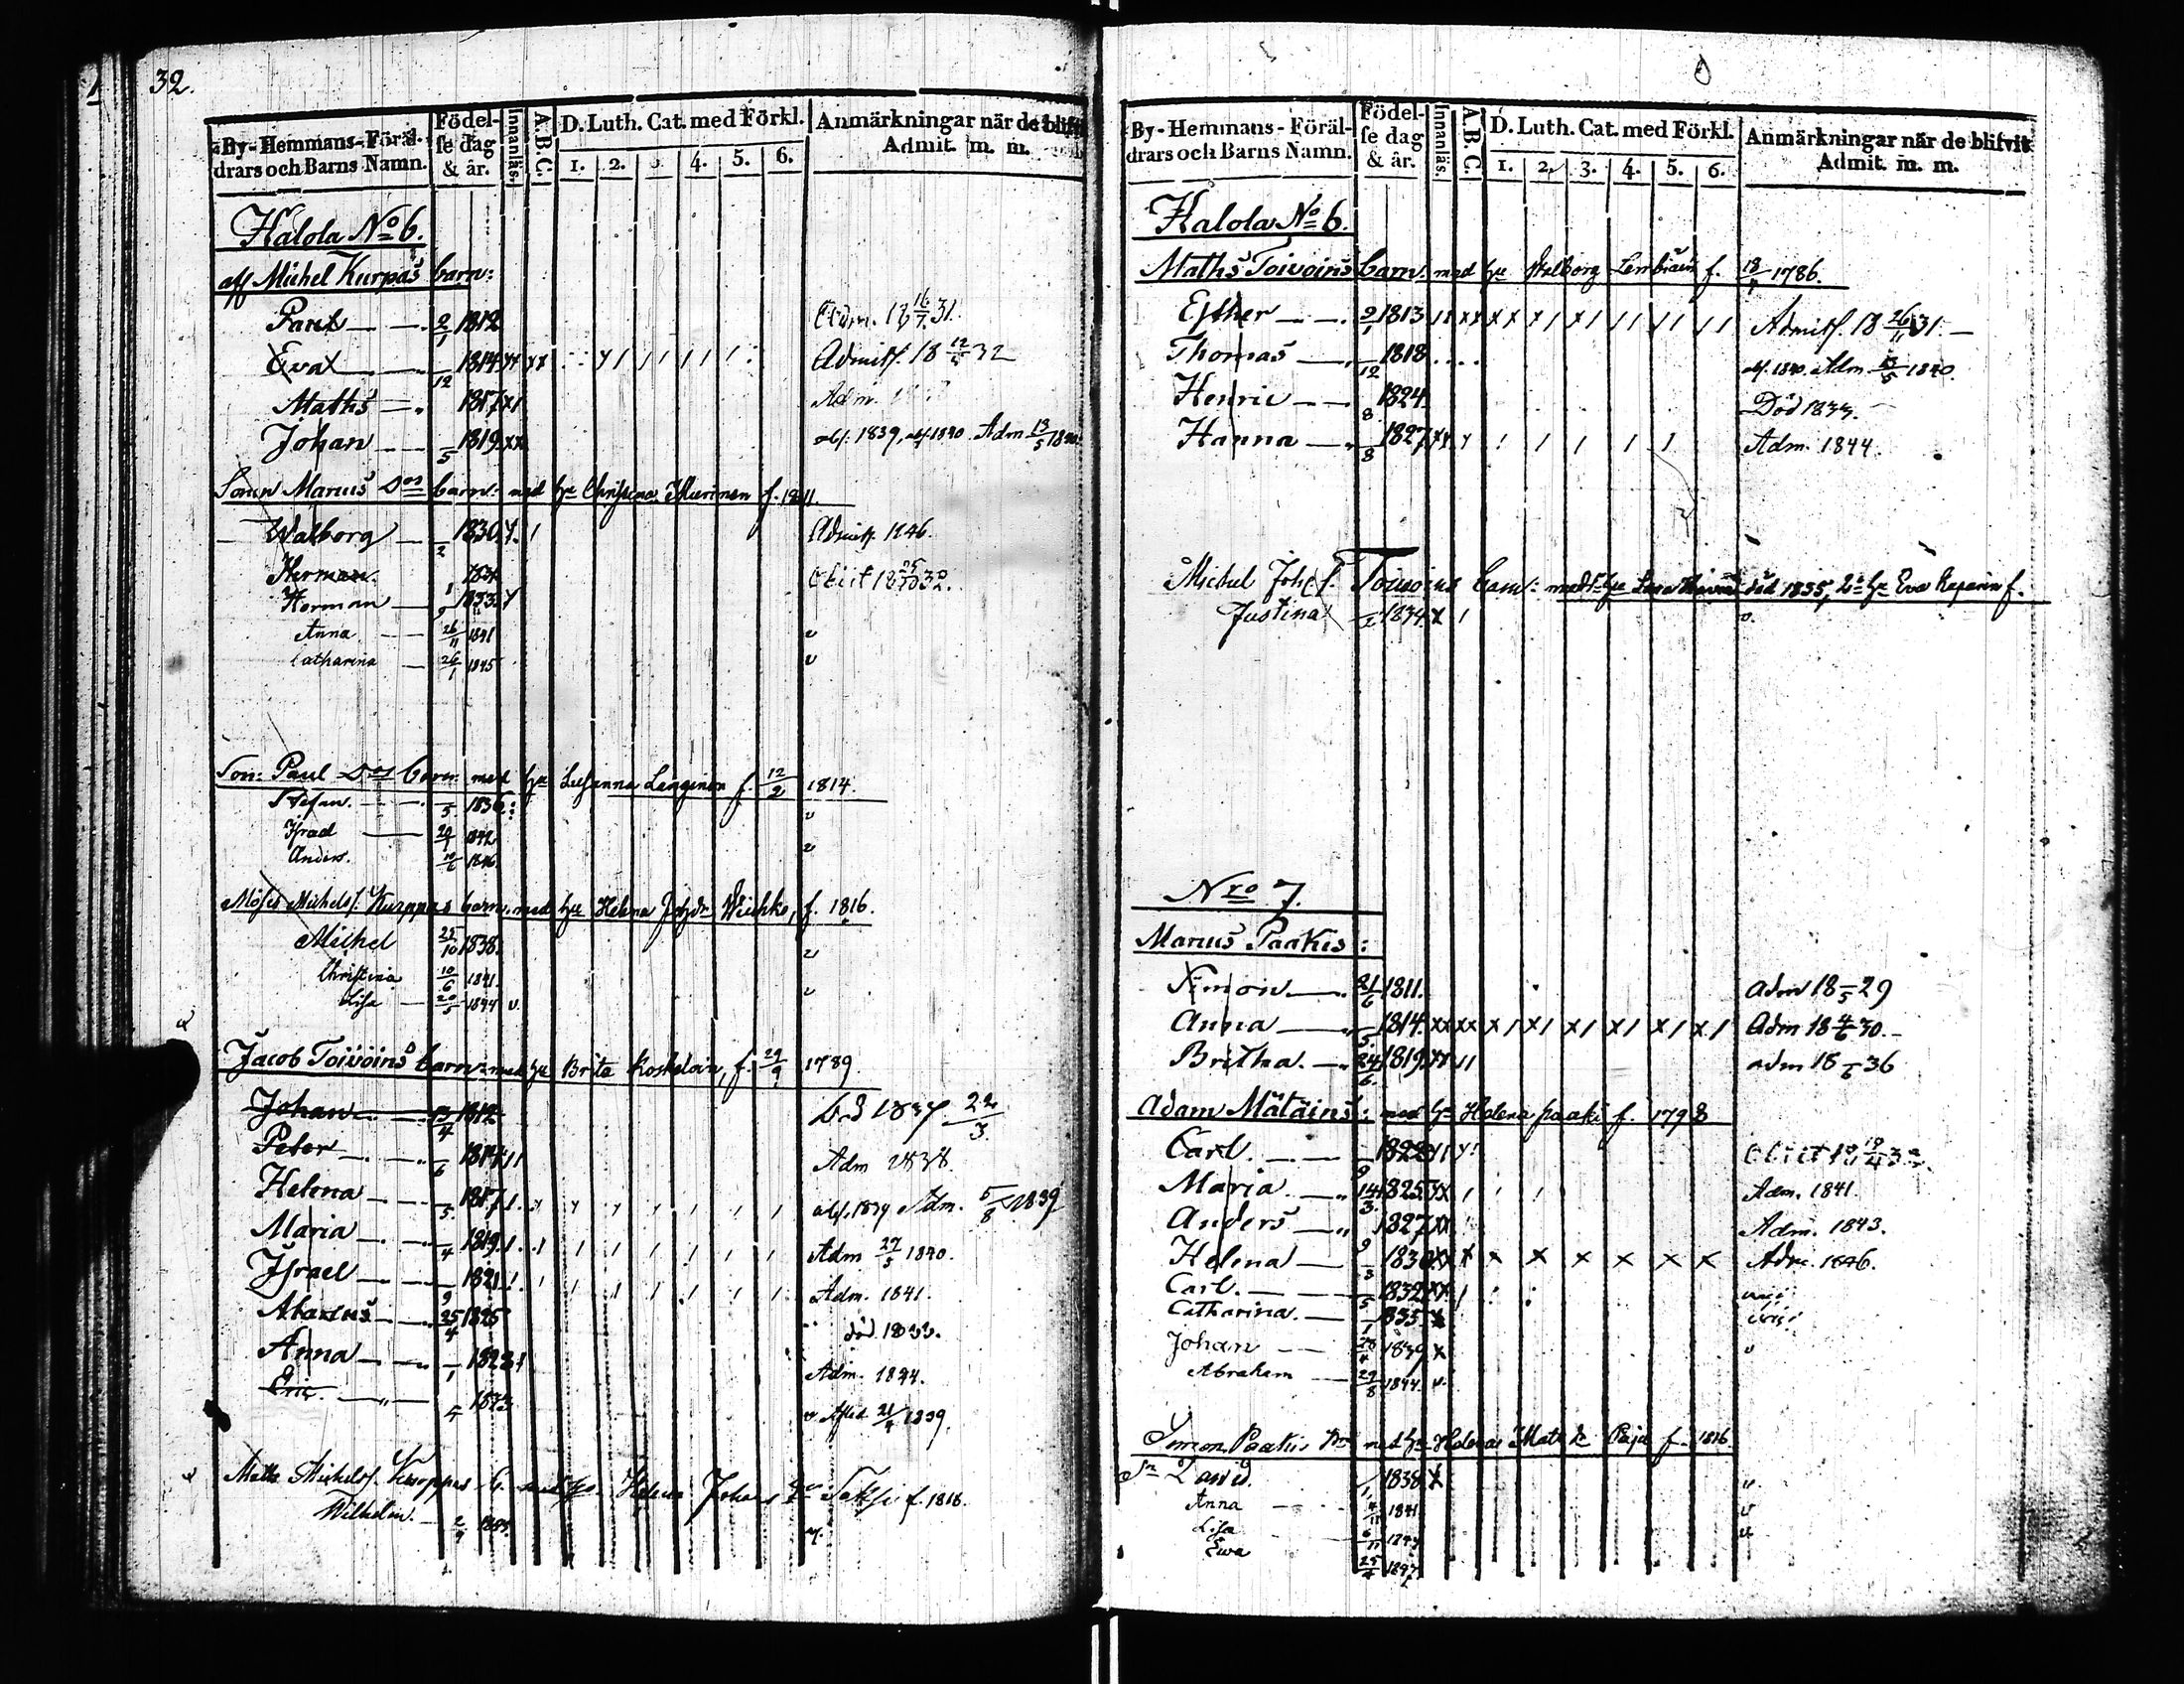 32.
By-Hemmans-Föräl-drars och Barns Namn. Födelse dag & år. Innanläs. A.B.C. D. Luth. Cat. med Förkl. 1. 2. 3. 4. 5. 6. Anmärkningar när de blifvit Admit. m. m.
Halola No 6.
aff Michel Kurpas barn:
Paul 2/1 1812 Adm. 18 16/7 31.
Eva 12 1814 Admitt. 18 32
Maths 1817 Adm.
Johan 5 1819 abs. 1839, abs. 1840. Adm. 13/5 1840
Sonen Marcus Dos barn: med hu Christina Muurinen f. 1811.
Walborg 2 1830 Admitt. 1846.
Herman 1831 Obiit 18 25/10 32.
Herman 9 1833
Anna 26/11 1841 v
Catharina 26/1 1845 v
Son: Paul Dos barn med hu Susanna Lenginen f. 12/2 1814.
Stefan. 5 1836 v
Israel 1842 v
Anders. 10/6 1846
Moses Michelss. Kurppas barn med hu Helena Johsdr f. 1816.
Michel 10 1838 v
Christina 10/6 1841 v
Lisa 20/5 1844 v.
Jacob Toivoins barn med hu Brita Koskeloin, f. 29/9 1789.
Johan 4 1812 Dö 1837 22/3
Peter 6 1814 Adm 1838.
Helena 5 1817 abs. 1839 Adm. 5/8 1839
Maria 4 1819 Adm 27/5 1840.
Israel 9 1821 Adm. 1841.
Marcus 25/4 1825 död 1833.
Anna 1 1828 Adm. 1844.
Eric 4 1833 v Afled 21/4 1839.
Maths Michelss. Kurppas b. med hu Helena Johans dr f. 1818.
Wilhelm. 2/9 v.
By-Hemmans-Föräl-drars och Barns Namn. Födelse dag & år. Innanläs. A.B.C. D. Luth. Cat. med Förkl. 1. 2. 3. 4. 5. 6. Anmärkningar när de blifvit Admit. m. m.
Halola No 6.
Maths Toivoins barn med hu Walborg Lembiäin f. 18 1786.
Esther 2/1 1813 Admitt. 18 26/11 31.
Thomas 12 1818 abs. 1840. Adm. 13/5 1840.
Henric 8 1824 Död 1833.
Hanna 8 1827 Adm. 1844.
Michel Johss. Toivoins barn: med 1a hu död 1835, 2a hu Eva f.
Justina 2 1834 v.
Nro 7.
Marcus Paakis:
Simon 21/6 1811. adm 18 5 29
Anna 5 1814 Adm 18 4/6 30.
Britha. 24/6 1819 adm 18 6 36
Adam Mätäins: med hu Helena paaki f. 1798
Carl. 9 1822 Obiit 18 19/4 32.
Maria 14/3 1825 Adm. 1841.
Anders 9 1827 Adm. 1843.
Helena 3 1830 Adm. 1846.
Carl. 5 1832
Catharina. 1 1835
Johan 1839 v
Abraham 29/8 1844. v.
Simon Paakis med hu Helena Mats dr f. 1816.
Sn David. 1 1838 v.
Anna 4/11 1841 v
Lisa 6/11 v
Ewa 25/4 1847